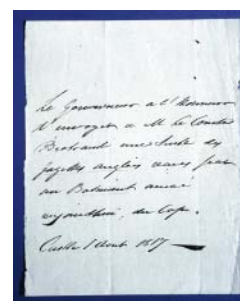 Le Gouverneur a l'honneur
d'envoyer a M. le Comte
Bertrand une suite des
gazettes anglais par
un Batiment arrivé
aujourdhui, du Cap.
Aout 1817